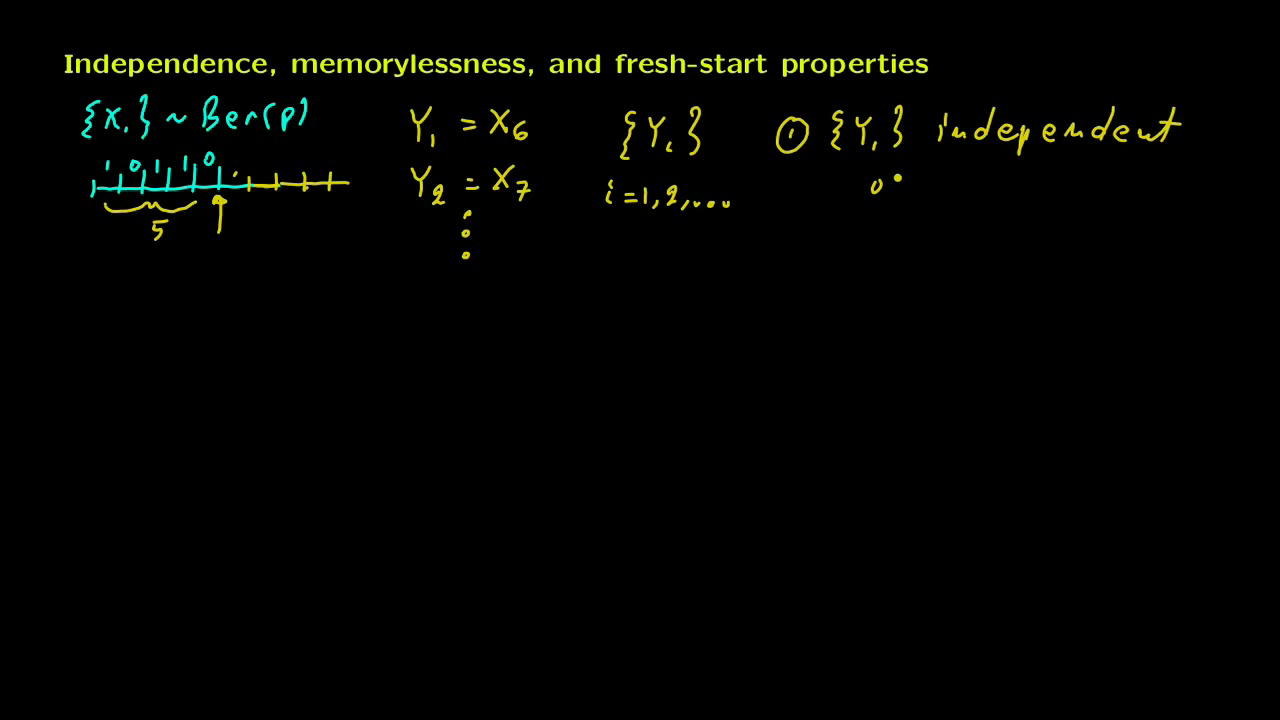 Independence, memorylessness, and fresh-start properties
{X_i} ~ Ber(p)
1 0 1 1 1 0
5
Y_1 = X_6
Y_2 = X_7
{Y_i}
i = 1, 2, ...
① {Y_i} independent